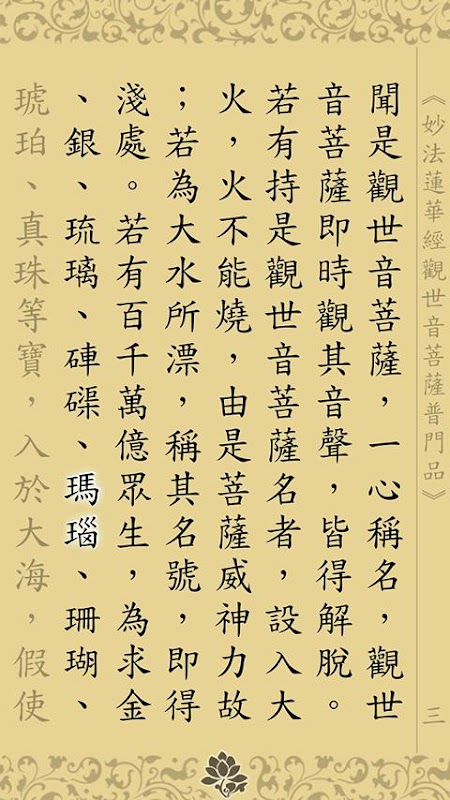 《妙法蓮華經觀世音菩薩普門品》 三
聞是觀世音菩薩，一心稱名，觀世
音菩薩即時觀其音聲，皆得解脫。
若有持是觀世音菩薩名者，設入大
火，火不能燒，由是菩薩威神力故
；若為大水所漂，稱其名號，即得
淺處。若有百千萬億眾生，為求金
、銀、琉璃、硨磲、瑪瑙、珊瑚、
琥珀、真珠等寶，入於大海，假使